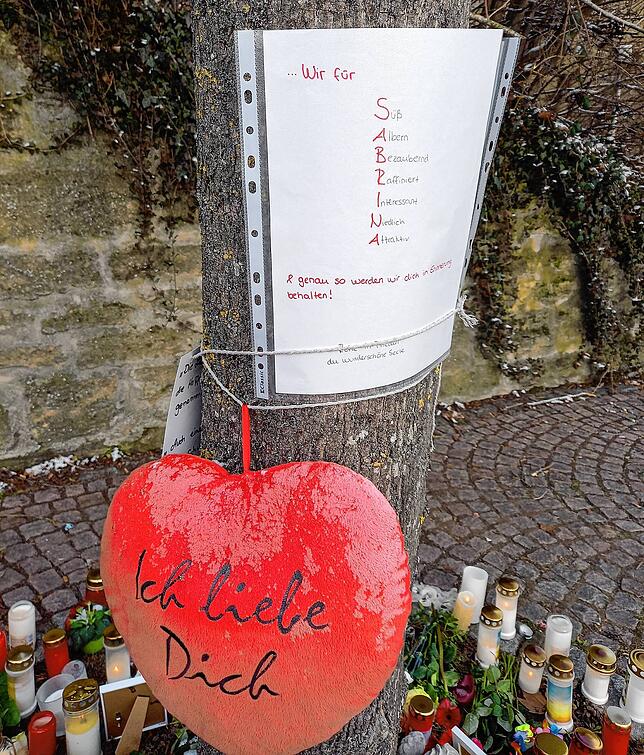 ... Wir für
Süß
Albern
Bezaubernd
Raffiniert
Interessant
Niedlich
Attraktiv
& genau so werden wir dich in Erinnerung
behalten!
du wunderschöne Seele
Ich liebe
Dich